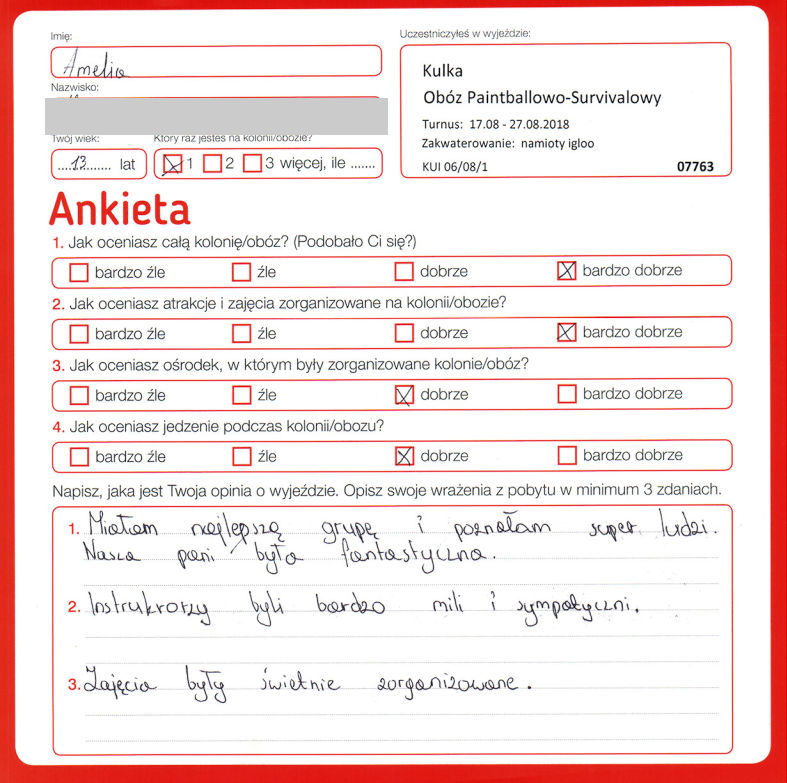 Imię:
Amelia
Nazwisko:
Twój wiek:
13 lat
Który raz jesteś na kolonii/obozie?
1 2 3 więcej, ile .......
Uczestniczyłeś w wyjeździe:
Kulka
Obóz Paintballowo-Survivalowy
Turnus: 17.08 - 27.08.2018
Zakwaterowanie: namioty igloo
KUI 06/08/1 07763
Ankieta
1. Jak oceniasz całą kolonię/obóz? (Podobało Ci się?)
bardzo źle źle dobrze bardzo dobrze
2. Jak oceniasz atrakcje i zajęcia zorganizowane na kolonii/obozie?
bardzo źle źle dobrze bardzo dobrze
3. Jak oceniasz ośrodek, w którym były zorganizowane kolonie/obóz?
bardzo źle źle dobrze bardzo dobrze
4. Jak oceniasz jedzenie podczas kolonii/obozu?
bardzo źle źle dobrze bardzo dobrze
Napisz, jaka jest Twoja opinia o wyjeździe. Opisz swoje wrażenia z pobytu w minimum 3 zdaniach.
1. Miałam najlepszą grupę i poznałam super ludzi.
Nasza pani była fantastyczna.
2. Instrukrorzy byli bardzo mili i sympatyczni.
3. Zajęcia były świetnie zorganizowane.